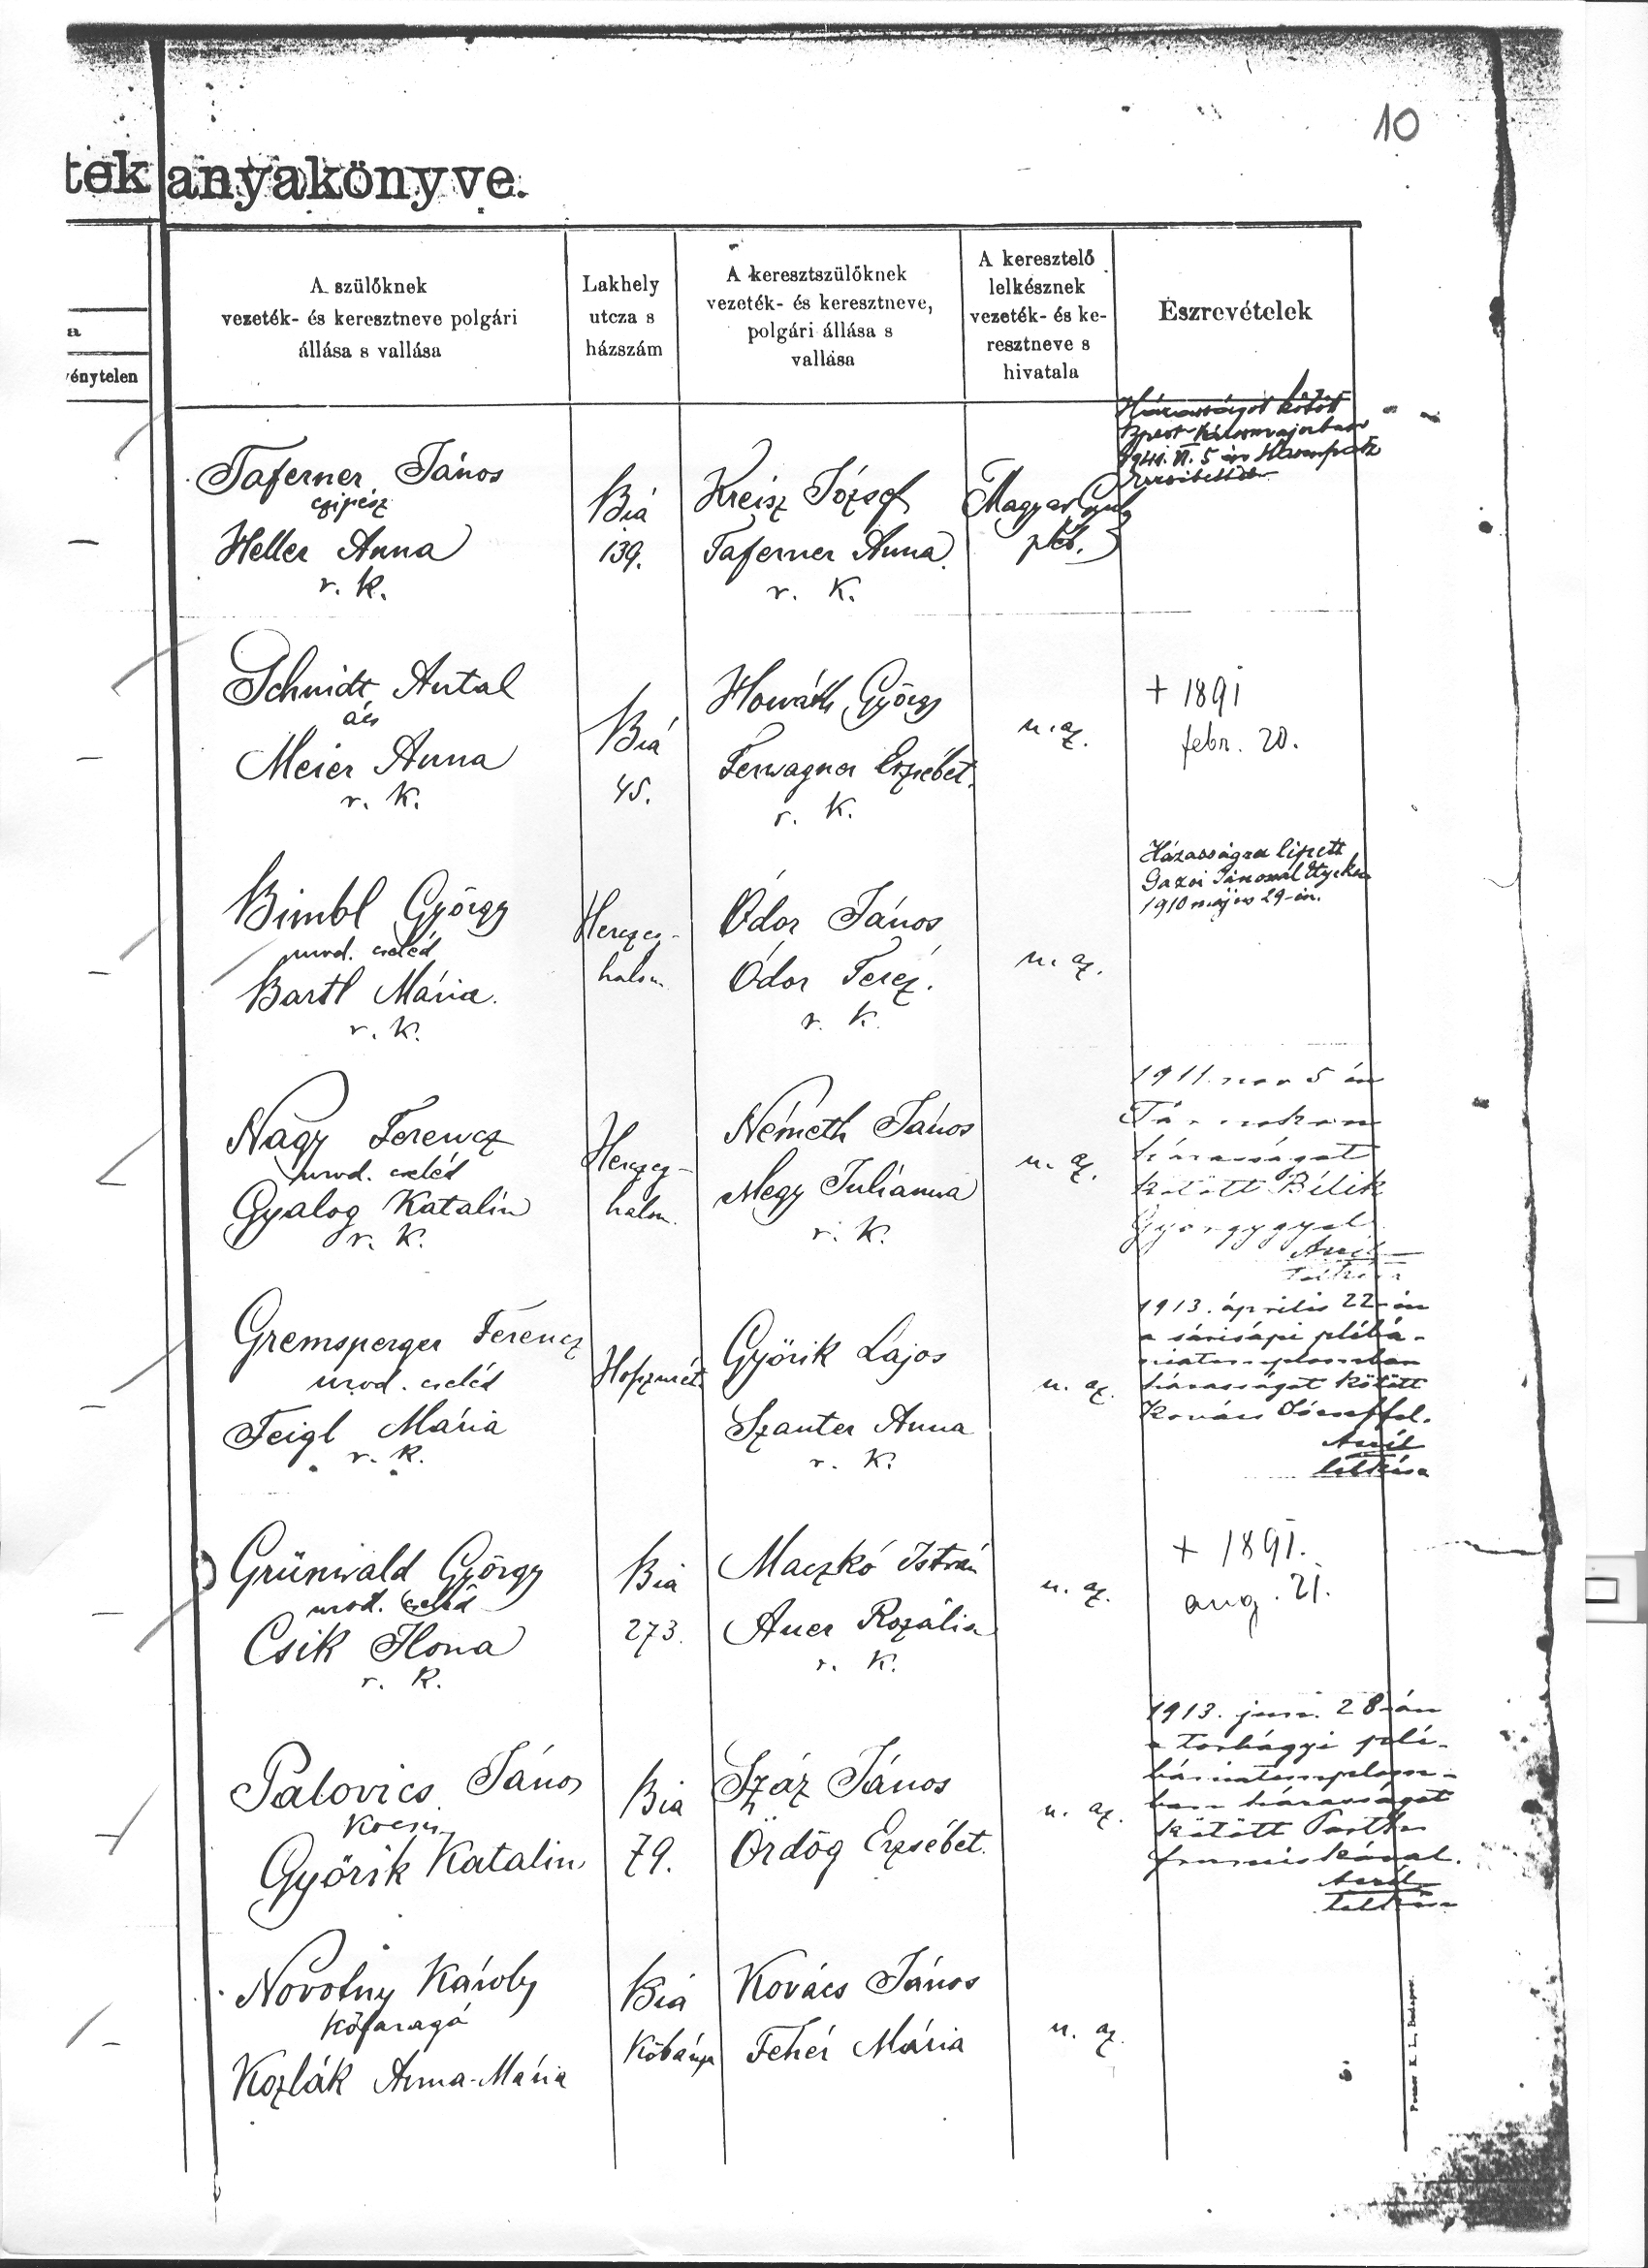 10
tek anyakönyve.
a
vénytelen
A szülőknek
vezeték- és keresztneve polgári
állása s vallása
Lakhely
utcza s
házszám
A keresztszülőknek
vezeték- és keresztneve,
polgári állása s
vallása
A keresztelő
lelkésznek
vezeték- és ke-
resztneve s
hivatala
Észrevételek
Taferner János
czipész
Heller Anna
r. k.
Biá
139.
Kreisz József
Taferner Anna
r. k.
Magyar
pléb.
Házasságot kötött
1941. VI. 5 én
Schmidt Antal
ács
Meier Anna
r. k.
Biá
45.
Horváth György
Ferwagner Erzsébet.
r. k.
u. az.
+ 1891
febr. 20.
Bimbl György
urod. cseléd
Bartl Mária.
r. k.
Herczeg-
halom
Ódor János
Ódor Teréz.
r. k.
u. az.
Házasságra lépett
Gazsi Jánossal Etyeken
1910 május 29-én.
Nagy Ferencz
urod. cseléd
Gyalog Katalin
r. k.
Herczeg-
halom.
Németh János
Megy Juliánna
r. k.
u. az.
1911. nov 5 én
Tárnokon
házasságot
kötött Bilik
Györgygyel
Gremsperger Ferencz
urod. cseléd
Feigl Mária
r. k.
Győrik Lajos
Szauter Anna
r. k.
u. az.
1913. április 22-én
a sárisápi plébá-
niatemplomban
házasságot kötött
Kovács Józseffel.
lelkész
Grünwald György
urod. cseléd
Csik Ilona
r. k.
Bia
273.
Maczkó István
Auer Rozália
r. k.
u. az.
+ 1891.
aug. 21.
Palovics János
kocsis
Győrik Katalin
Bia
79.
Száz János
Ördög Erzsébet.
u. az.
1913. jun. 28-án
a torbágyi plé-
bániatemplom-
ban házasságot
kötött
Novotny Károly
kőfaragó
Kozlák Anna-Mária
Biá
Kőbánya
Kovács János
Fehér Mária
u. az.